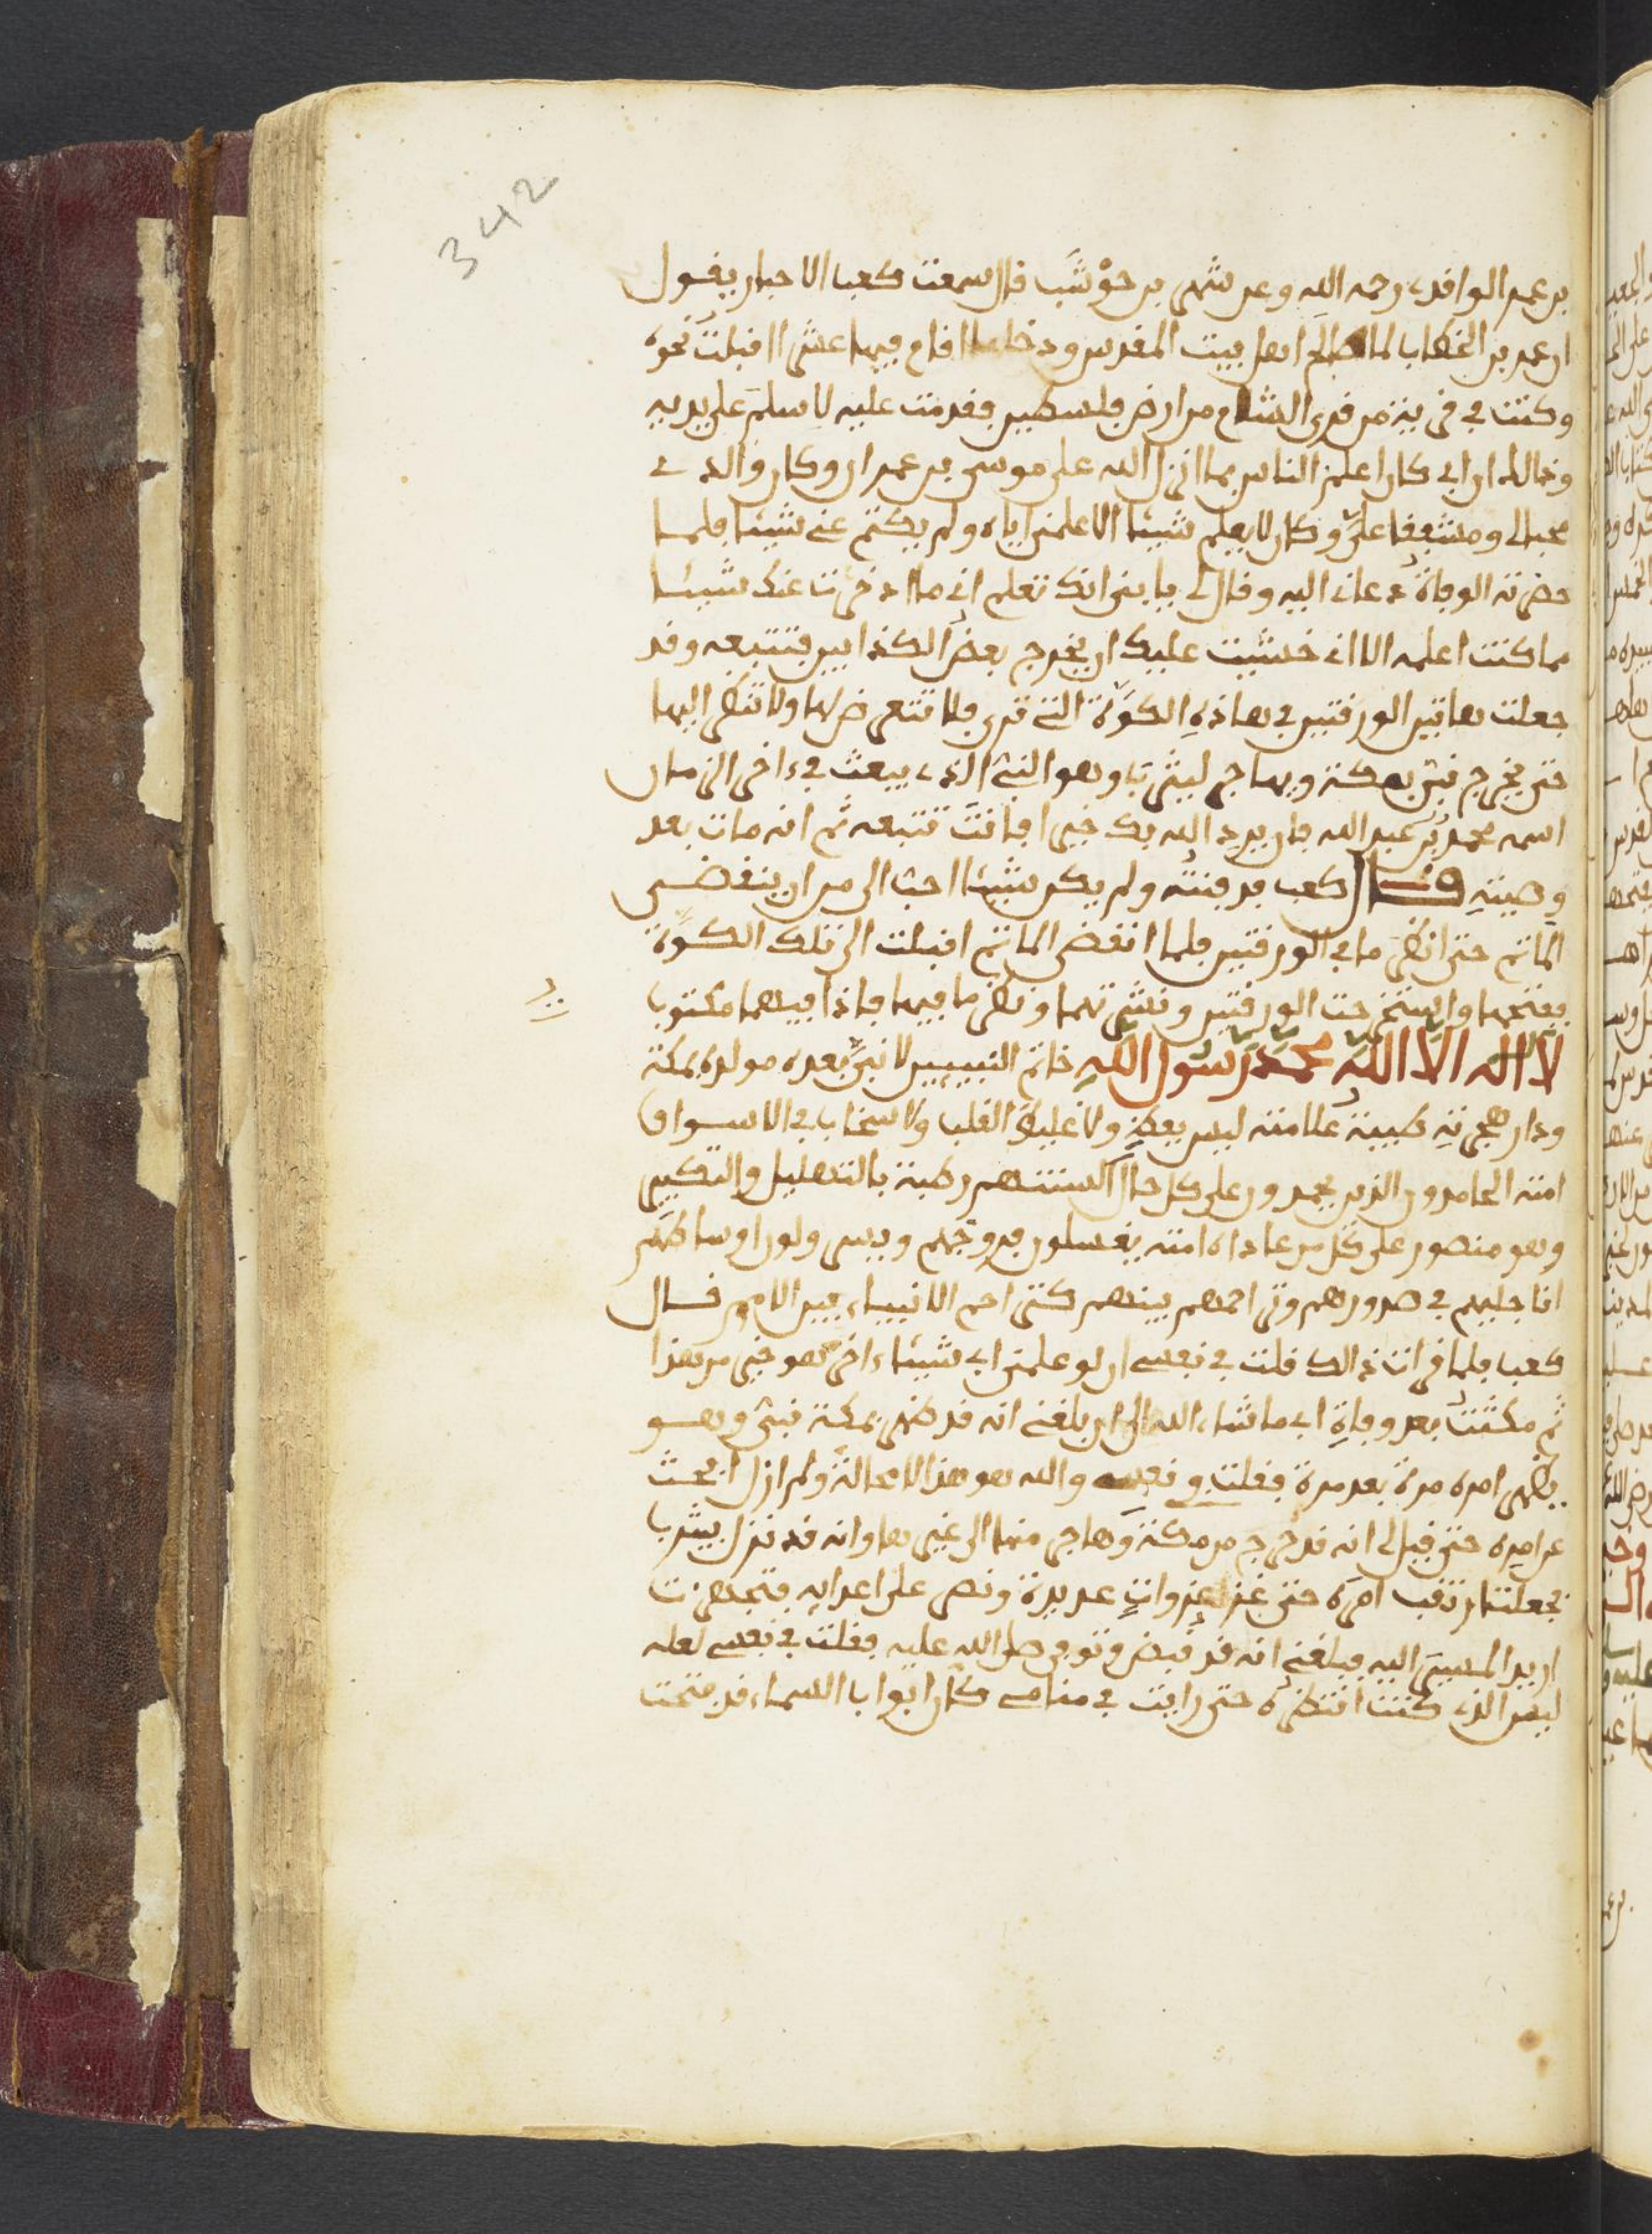 342
بن عمر الواقدي رحمه الله وعن شهر بن حوْشَب قال سمعت كعب الاحبار يقول
ان عمر بن الخطاب لما صالح اهل بيت المقدس ودخلها اقام فيها عشرا اقبلت نحوه
وكنت في قرية من قرى الشام من ارض فلسطين فقدمت عليه لاسلم على يديه
وذالك ان ابي كان اعلم الناس بما انزل الله على موسى بن عمران وكان والدي
محبا لي ومشفقا عليّ وكان لا يعلم شيئا الا علمني اياه ولم يكتم عني شيئا فلما
حضرته الوفاة دعاني اليه وقال لي يا بني انك تعلم اني ما ادخرت عنك شيئا
مما كنت اعلمه الا اني خشيت عليك ان يخرج بعض الكذابين فتتبعه وقد
جعلت هاتين الورقتين في هاذه الكوّة التي ترى فلا تتعرض لها ولا تنظر اليها
حتى يخرج نبيّ بمكة ويهاجر ليثرب وهو النبيّ الذي يبعث في ءاخر الزمان
اسمه محمد بن عبد الله فان يرد الله بك خيرا فانت تتبعه ثم انه مات بعد
وصيته قال كعب فدفنته ولم يكن شيئا احب الي من ان ينقضي
الماتم حتى انظر ما في الورقتين فلما انقضى الماتم اقبلت الى تلك الكوّة
ففتحها واستخرجت الورقتين ونشرتهما ونظر ما فيها فاذا فيهما مكتوب
لا اله الا الله محمد رسول الله خاتم النبيين لا نبيّ بعده مولده بمكة
ودار هجرته طيبة علامته ليس بفظ ولا غليظ القلب ولا سخاب في الاسواق
امته الحامدون الذين يحمدون على كل حال السنتهم رطبة بالتهليل والتكبير
وهو منصور على كل من عاداه امته يغسلون فروجهم ويسترون اوساطهم
اناجيلهم في صدورهم وتراحمهم بينهم كتراحم الانبياء بين الامم قال
كعب فلما قرات ذالك قلت في نفسي ان لو علمني ابي شيئا ءاخر هو خير من هذا
ثم مكثت بعد وفاة ابي ما شاء الله الى ان بلغني انه قد ظهر بمكة نبيّ وهو
يظهر امره مرة بعد مرة فقلت في نفسي والله هو هذا لا محالة ولم ازل ابحث
عن امره حتى قيل لي انه قد خرج من مكة وهاجر منها الى غيرها وانه قد نزل بيثرب
فجعلت ارتقب امره حتى غزا غزوات عديدة ونصر على اعدايه فتجهزت
اريد المسير اليه فبلغني انه قد قبض وتوفي صلى الله عليه فقلت في نفسي لعله
ليس الذي كنت انتظره حتى رايت في منامي كان ابواب السماء قد فتحت